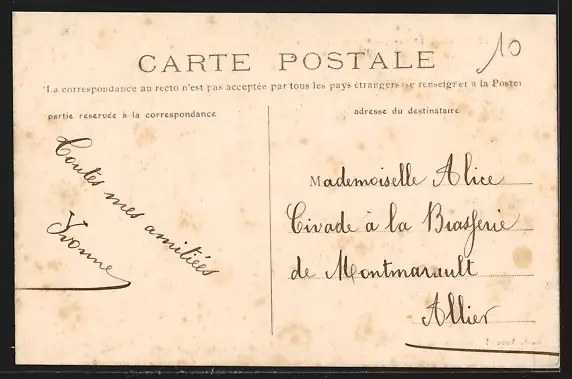 10
CARTE POSTALE
La correspondance au recto n'est pas acceptée par tous les pays étrangers (se renseigner à la Poste)
partie réservée à la correspondance
adresse du destinataire
Toutes mes amitiées
Yvonne
Mademoiselle Alice
Civade à la Brasserie
de Montmarault
Allier